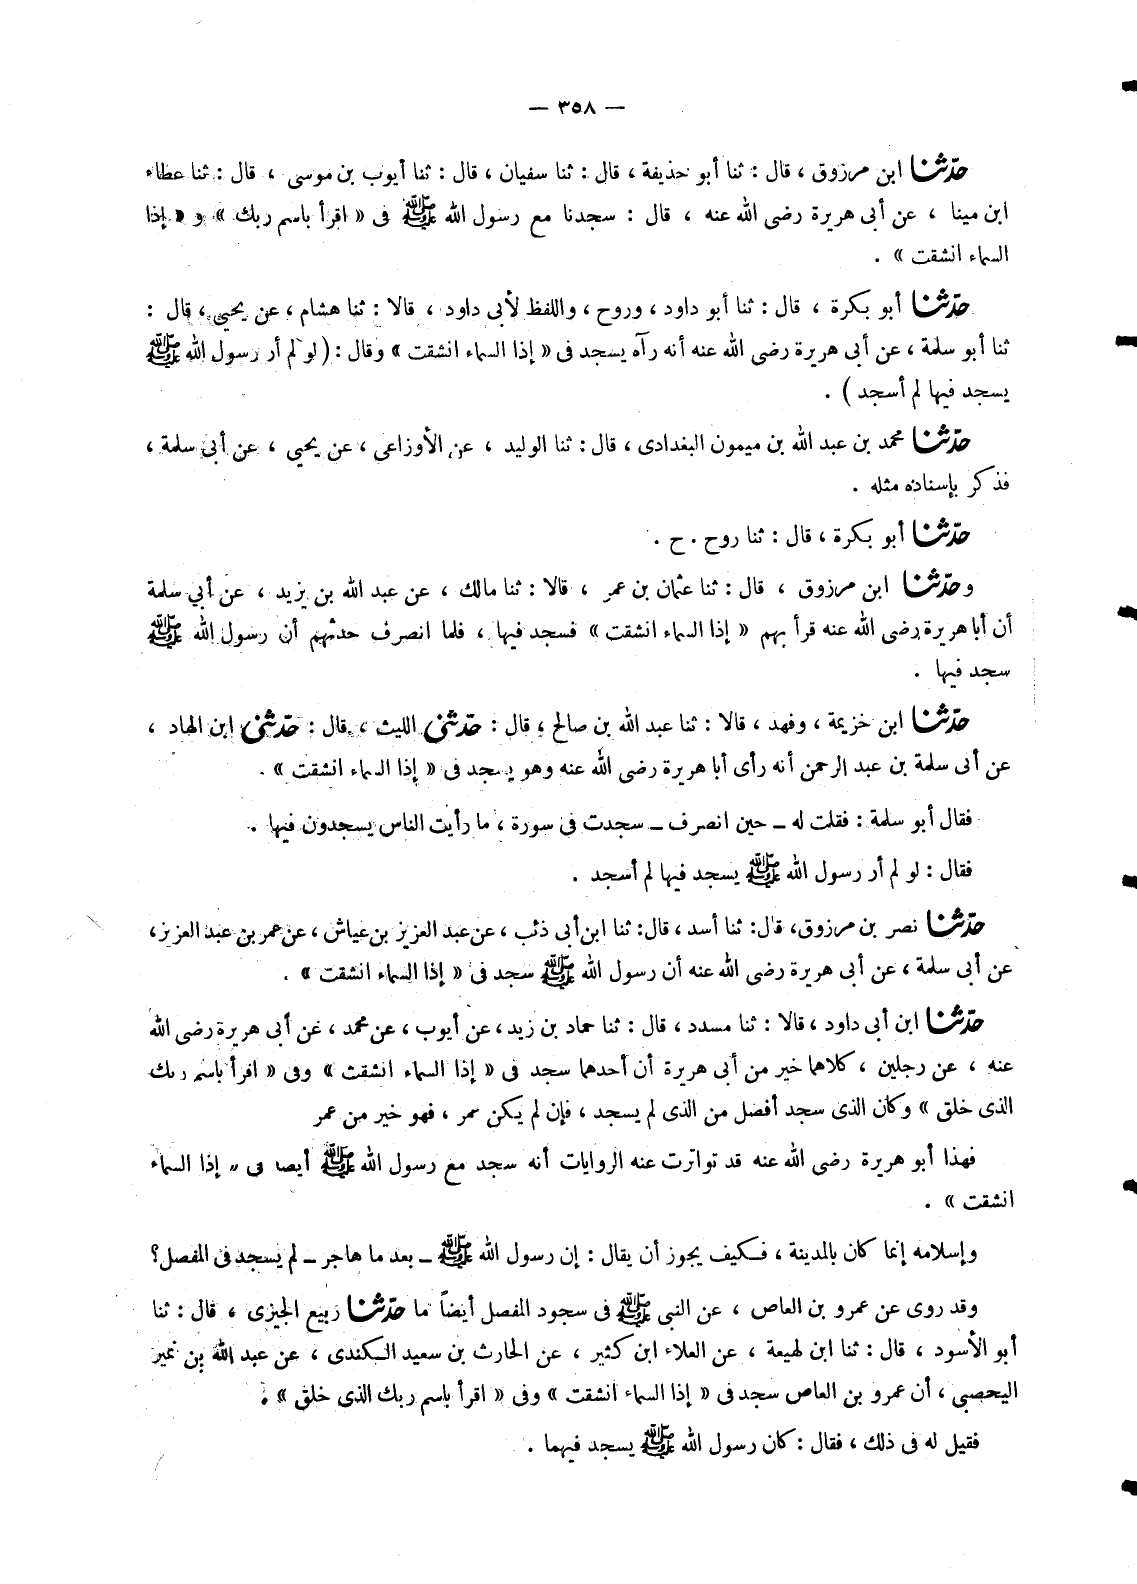 — ٣٥٨ —
حدّثنا ابن مرزوق ، قال : ثنا أبو حذيفة ، قال : ثنا سفيان ، قال : ثنا أيوب بن موسى ، قال : ثنا عطاء
ابن مينا ، عن أبى هريرة رضى الله عنه ، قال : سجدنا مع رسول الله ﷺ فى « اقرأ باسم ربك » و « إذا
السماء انشقت » .
حدّثنا أبو بكرة ، قال : ثنا أبو داود ، وروح ، واللفظ لأبى داود ، قالا : ثنا هشام ، عن يحيى ، قال :
ثنا أبو سلمة ، عن أبى هريرة رضى الله عنه أنه رآه يسجد فى « إذا السماء انشقت » وقال : ( لو لم أر رسول الله ﷺ
يسجد فيها لم أسجد ) .
حدّثنا محمد بن عبد الله بن ميمون البغدادى ، قال : ثنا الوليد ، عن الأوزاعى ، عن يحيى ، عن أبى سلمة ،
فذكر بإسناده مثله .
حدّثنا أبو بكرة ، قال : ثنا روح . ح .
وحدّثنا ابن مرزوق ، قال : ثنا عثمان بن عمر ، قالا : ثنا مالك ، عن عبد الله بن يزيد ، عن أبي سلمة
أن أبا هريرة رضى الله عنه قرأ بهم « إذا السماء انشقت » فسجد فيها ، فلما انصرف حدثهم أن رسول الله ﷺ
سجد فيها .
حدّثنا ابن خزيمة ، وفهد ، قالا : ثنا عبد الله بن صالح ، قال : حدّثنى الليث ، قال : حدّثنى ابن الهاد ،
عن أبى سلمة بن عبد الرحمن أنه رأى أبا هريرة رضى الله عنه وهو يسجد فى « إذا السماء انشقت » .
فقال أبو سلمة : فقلت له ــ حين انصرف ــ سجدت فى سورة ، ما رأيت الناس يسجدون فيها .
فقال : لو لم أر رسول الله ﷺ يسجد فيها لم أسجد .
حدّثنا نصر بن مرزوق، قال: ثنا أسد ، قال: ثنا ابن أبى ذئب ، عن عبد العزيز بن عياش ، عن عمر بن عبد العزيز،
عن أبى سلمة ، عن أبى هريرة رضى الله عنه أن رسول الله ﷺ سجد فى « إذا السماء انشقت » .
حدّثنا ابن أبى داود ، قالا : ثنا مسدد ، قال : ثنا حماد بن زيد ، عن أيوب ، عن محمد ، عن أبى هريرة رضى الله
عنه ، عن رجلين ، كلاهما خير من أبى هريرة أن أحدهما سجد فى « إذا السماء انشقت » وفى « اقرأ باسم ربك
الذى خلق » وكان الذى سجد أفضل من الذى لم يسجد ، فإن لم يكن عمر ، فهو خير من عمر
فهذا أبو هريرة رضى الله عنه قد تواترت عنه الروايات أنه سجد مع رسول الله ﷺ أيضا فى « إذا السماء
انشقت » .
وإسلامه إنما كان بالمدينة ، فكيف يجوز أن يقال : إن رسول الله ﷺ ــ بعد ما هاجر ــ لم يسجد فى المفصل؟
وقد روى عن عمرو بن العاص ، عن النبى ﷺ فى سجود المفصل أيضاً ما حدّثنا ربيع الجيزى ، قال : ثنا
أبو الأسود ، قال : ثنا ابن لهيعة ، عن العلاء ابن كثير ، عن الحارث بن سعيد الكندى ، عن عبد الله بن نمير
اليحصبى ، أن عمرو بن العاص سجد فى « إذا السماء انشقت » وفى « اقرأ باسم ربك الذى خلق » .
فقيل له فى ذلك ، فقال : كان رسول الله ﷺ يسجد فيهما .